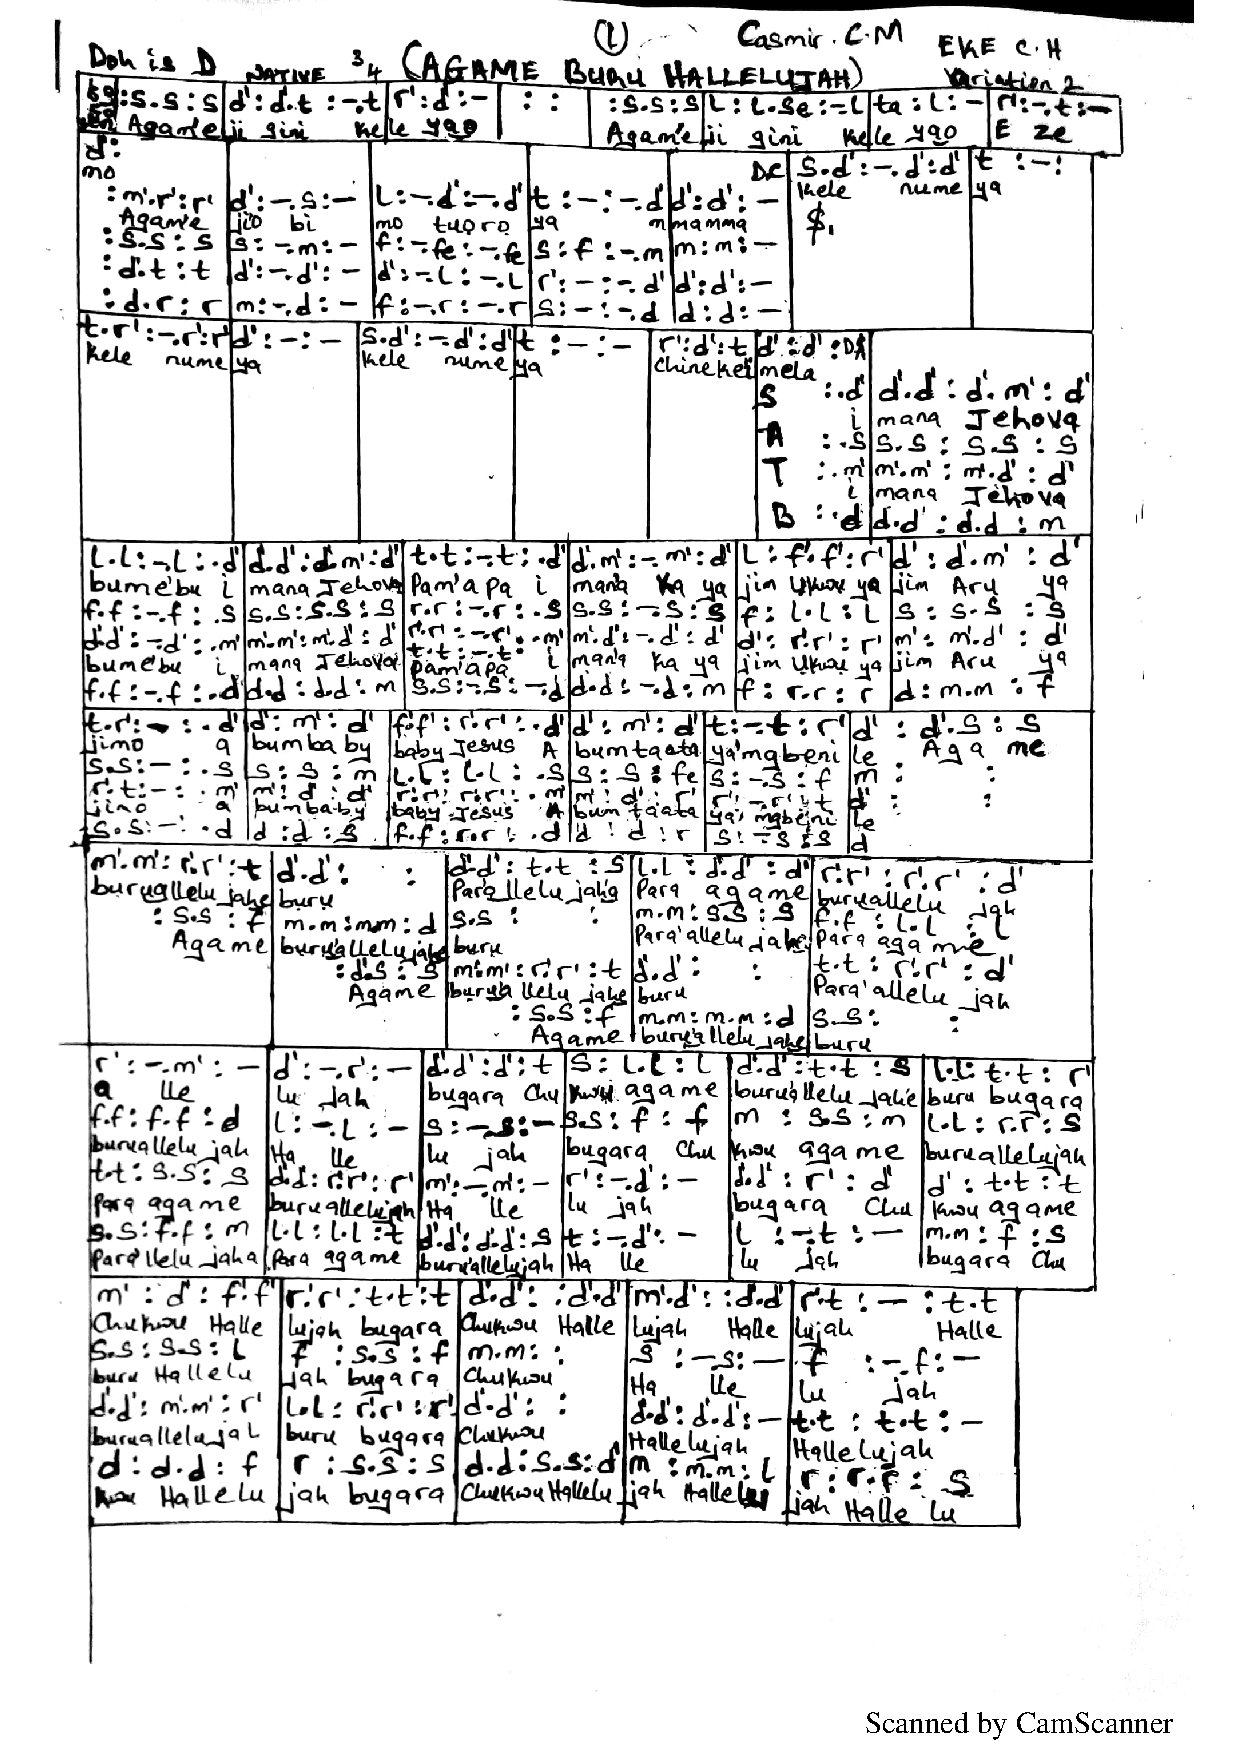 (1) Casmir. C.M EKE C.H
Doh is D NATIVE 3/4 (AGAME BURU HALLELUJAH) Variation 2
:s.s:s | d':d'.t:-.t | r':d':- | : : | :s.s:s | L:L.se:-L | ta:L:- | r':-.t:-
Agam'e ji gini kele yao Agam'e ji gini kele yao E ze
d': DC | s.d':-.d':d' | t :-:
mo kele nume ya
:m'.r':r' | d':-.s:- | L:-.d':-.d' | t:-:-.d | d':d':- $.
Agam'e jio bi mo tuoro ya m mamma
:s.s:s | s:-.m:- | f:-.fe:-.fe | s:f:-.m | m:m:-
:d.t:t | d':-.d':- | d':-.L:-.L | r':-:-.d' | d':d':-
:d.r:r | m:-.d:- | f:-.r:-.r | s:-:-.d | d:d:-
t.r':-.r':r' | d':-:- | s.d':-.d':d' | t:-:- | r':d':t | d':d':
kele nume ya kele nume ya chineke mela
S :.d' | d'.d':d'.m':d'
i mana Jehova
A :.s | s.s:s.s:s
T :.m' | m'.m':m'.d':d'
i mana Jehova
B :.d | d.d':d.d:m
L.L:-.L:.d' | d'.d':d'.m':d' | t.t:-.t:.d' | d'.m':-.m':d' | L:f'.f':r' | d':d'.m':d'
bume'bu i mana Jehova Pam'apa i mana ka ya jim Ukwu ya jim Aru ya
f.f:-.f:.s | s.s:s.s:s | r.r:-.r:.s | s.s:-.s:s | f:L.L:L | s:s.s:s
d'.d':-.d':.m' | m'.m':m'.d':d' | r'.r':-.r':.m' | m'.d':-.d':d' | d':r'.r':r' | m':m'.d':d'
t.t:-.t:
bume'bu i mana Jehova pam'apa i mana ka ya jim Ukwu ya jim Aru ya
f.f:-.f:.d | d.d:d.d:m | s.s:-.s:-.d | d.d:-.d:m | f:r.r:r | d:m.m:f
t.r':-:.d' | d':m':d' | f'.f':r'.r':.d' | d':m':d' | t:-.t:r' | d':d'.s:s
jimo a bumba by baby Jesus A bum taata ya'mgbeni le Aga me
s.s:-:.s | s:s:m | L.L:L.L:.s | s:s:fe | s:-.s:f | m: :
r'.t:-:.m' | m':d':d' | r'.r':r'.r':.m' | m':d':r' | r':-.r':t | d': :
jimo a bumbaby baby Jesus A bum taata ya'mgbeni le
s.s:-:.d | d:d:s | f.f:r.r:.d | d:d:r | s:-.s:s | d
m'.m':r'.r':t | d'.d': : | d'.d':t.t:s | L.L:d'.d':d' | r'.r':r'.r':d'
buruallelu jahe buru Para'llelu jaha Para agame buruallelu jah
:s.s:f | m.m:m.m:d | s.s: : | m.m:s.s:s | f.f:L.L:L
Agame buru'allelu jahe buru Para'allelu jahe Para agame
:d'.s:s | m'.m':r'.r':t | d'.d': : | t.t:r'.r':d'
Agame buru'a llelu jahe buru Para'allelu jah
:s.s:f | m.m:m.m:d | s.s: :
Agame buru'allelu jahe buru
r':-.m':- | d':-.r':- | d'.d':d':t | s:L.L:L | d'.d':t.t:s | L.L:t.t:r'
a lle lu jah bugara Chu kwu agame buruallelu jahe buru bugara
f.f:f.f:d | L:-.L:- | s:-.s:- | s.s:f:f | m:s.s:m | L.L:r.r:s
buruallelu jah Ha lle lu jah bugara Chu kwu agame buruallelujah
t.t:s.s:s | d.d:r'.r':r' | m':-.m':- | r':-.d':- | d'.d':r':d' | d':t.t:t
Para agame buruallelujah Ha lle lu jah bugara Chu kwu agame
s.s:f.f:m | L.L:L.L:t | d'.d':d'.d':s | t:-.d':- | L:-.t:- | m.m:f:s
Para'llelu jaha Para agame buru'allelujah Ha lle lu jah bugara Chu
m':d':f'.f' | r'.r':t.t:t | d'.d': :d'.d' | m'.d': :d'.d' | r'.t:-:t.t
Chukwu Halle lujah bugara Chukwu Halle lujah Halle lujah Halle
s.s:s.s:L | f:s.s:f | m.m: : | s:-.s:- | f:-.f:-
buru Hallelu jah bugara Chukwu Ha lle lu jah
d'.d':m'.m':r' | L.L:r'.r':r' | d'.d': : | d'.d':d'.d':- | t.t:t.t:-
buruallelujah buru bugara Chukwu Hallelujah Hallelujah
d:d.d:f | r:s.s:s | d.d:s.s:d' | m:m.m:L | r:r.f:s
kwu Hallelu jah bugara Chukwu Hallelu jah Hallelu jah Halle lu
Scanned by CamScanner